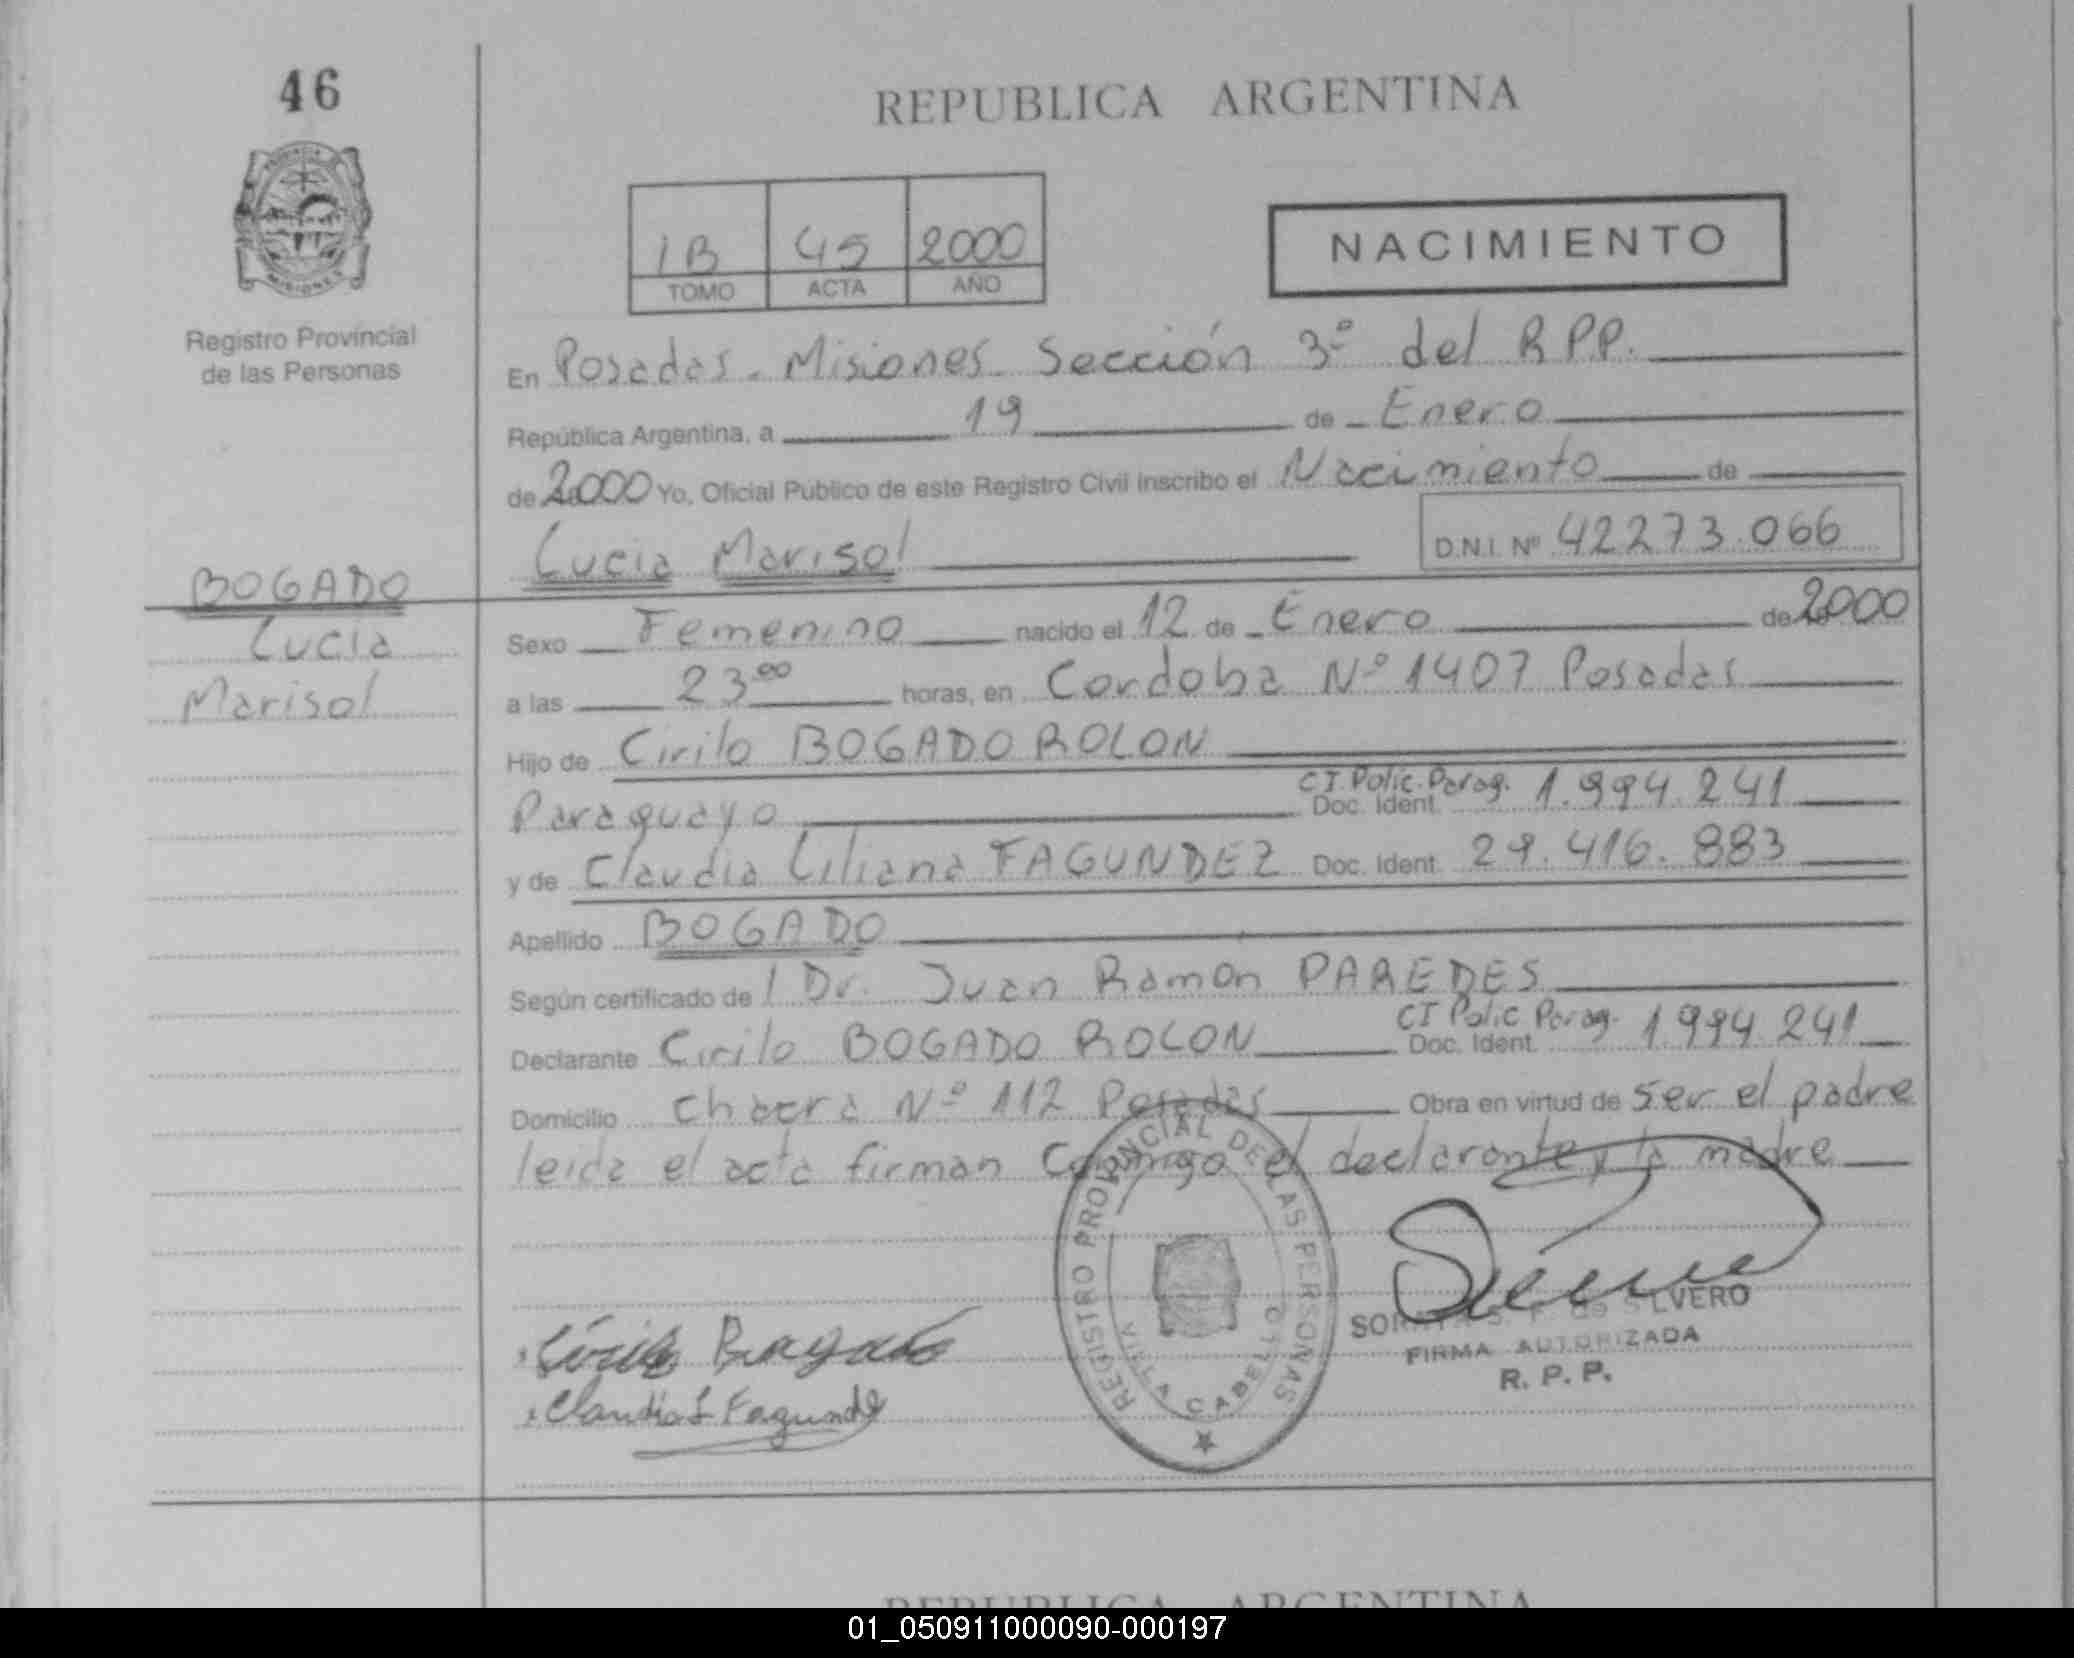 46
REPUBLICA ARGENTINA
PROVINCIA
MISIONES
Registro Provincial
de las Personas
1B 45 2000
TOMO ACTA AÑO
NACIMIENTO
En Posadas. Misiones. Sección 3º del R.P.P.
República Argentina, a 19 de Enero
de 2000 Yo, Oficial Público de este Registro Civil inscribo el Nacimiento de
Lucia Marisol D.N.I. Nº 42273.066
BOGADO
Lucia
Marisol
Sexo Femenino nacido el 12 de Enero de 2000
a las 23 00 horas, en Cordoba Nº 1407 Posadas
Hijo de Cirilo BOGADO ROLON
Paraguayo CI. Polic. Parag. Doc. Ident. 1.994.241
y de Claudia Liliana FAGUNDEZ Doc. Ident. 29.416.883
Apellido BOGADO
Según certificado del Dr. Juan Ramon PAREDES
Declarante Cirilo BOGADO ROLON CI Polic Parag. Doc. Ident. 1.994.241
Domicilio chacra Nº 112 Posadas Obra en virtud de ser el padre
leida el acta firman Conmigo el declarante y la madre
REGISTRO PROVINCIAL DE LAS PERSONAS
VILLA CABELLO
SILVERO
FIRMA AUTORIZADA
R. P. P.
Cirilo Bogado
Claudia L Fagundez
REPUBLICA ARGENTINA
01_050911000090-000197